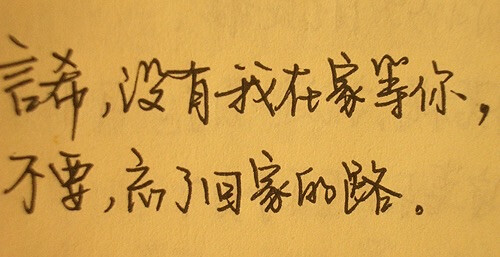 言希,没有我在家等你,
不要,忘了回家的路。